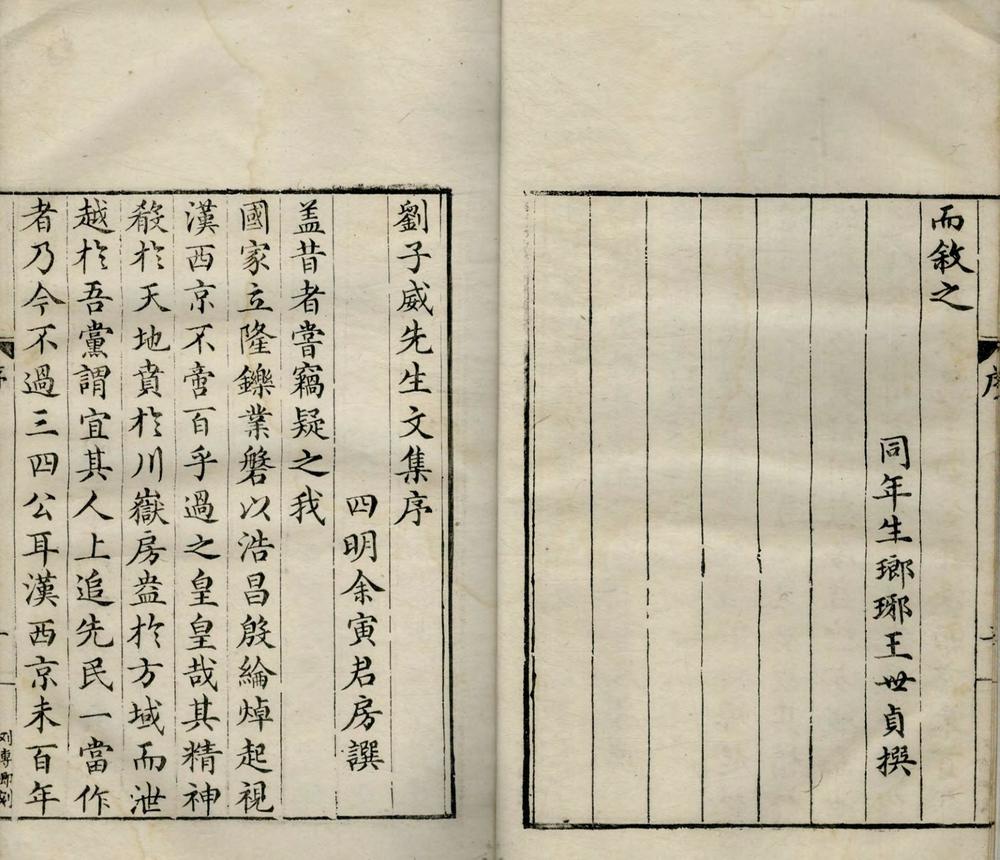 而敘之
同年生瑯琊王世貞撰
序
劉子威先生文集序
四明余寅君房譔
盖昔者甞竊疑之我
國家立隆鑠業磐以浩昌殷綸焯起視
漢西京不啻百乎過之皇皇哉其精神
殽於天地賁於川嶽房盎於方域而泄
越於吾黨謂宜其人上追先民一當作
者乃今不過三四公耳漢西京未百年
序